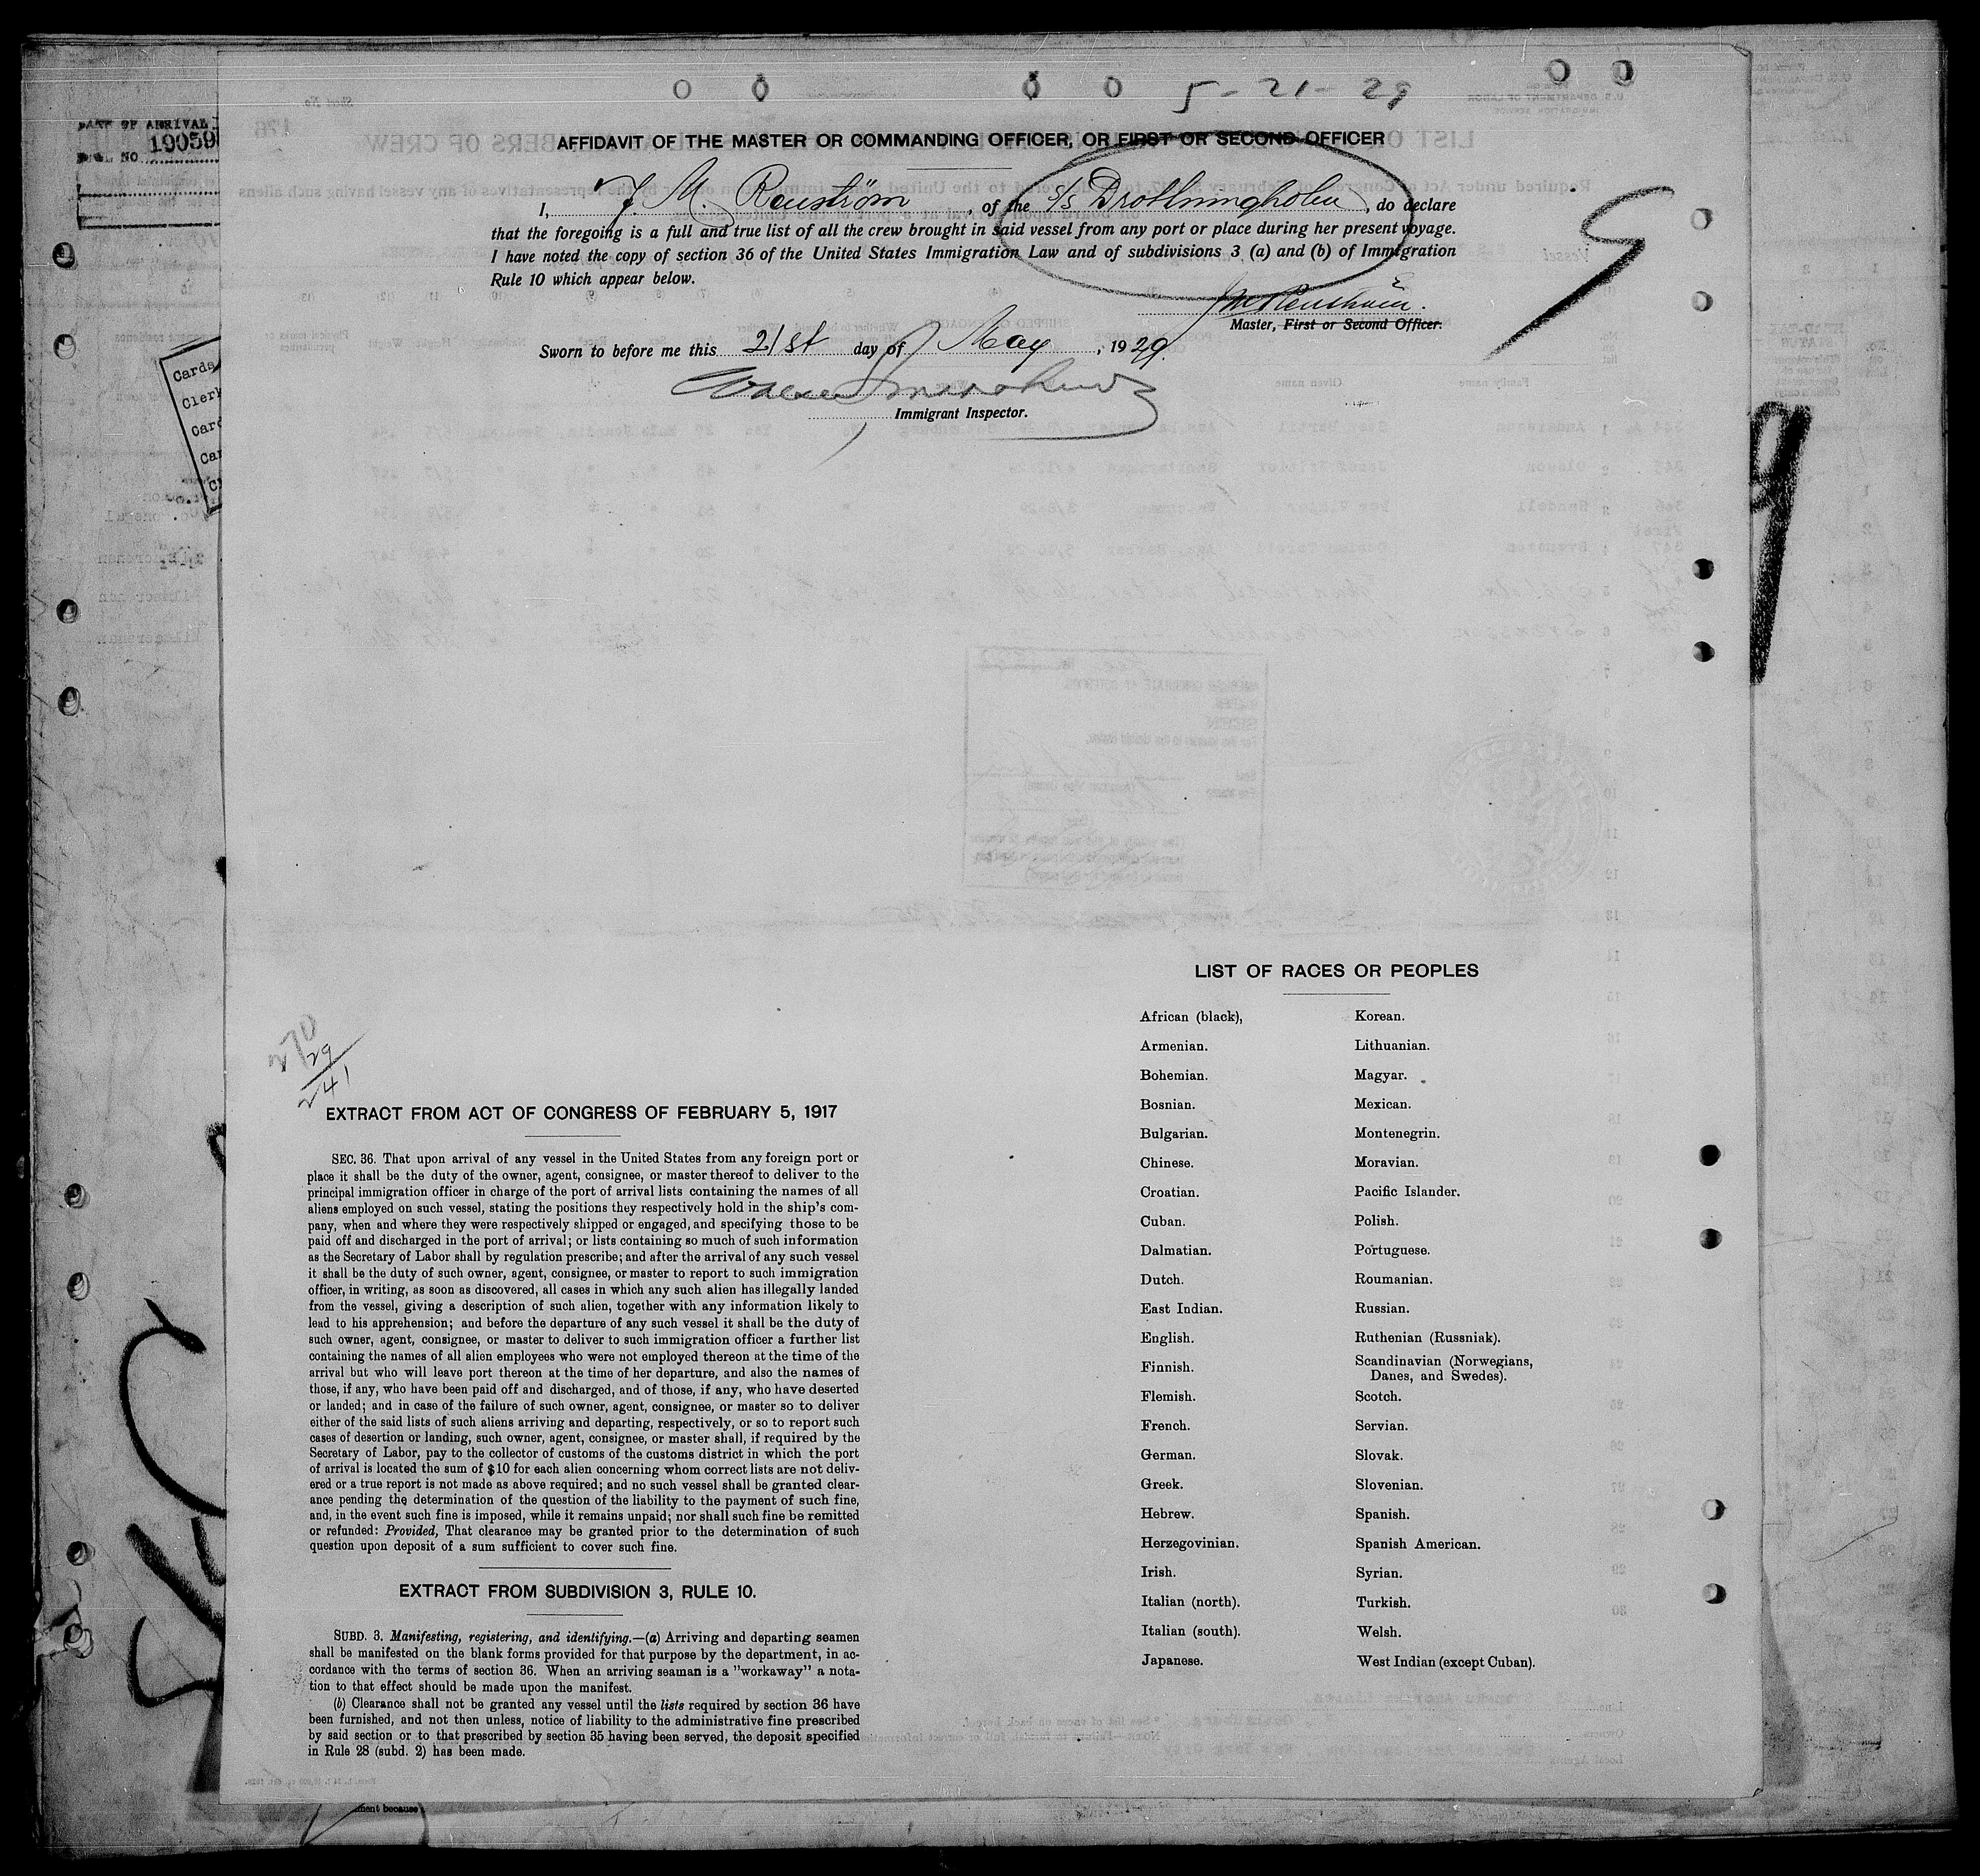 5-21-29
AFFIDAVIT OF THE MASTER OR COMMANDING OFFICER, OR FIRST OR SECOND OFFICER
I, J. M. Renström, of the S/s Drottningholm, do declare
that the foregoing is a full and true list of all the crew brought in said vessel from any port or place during her present voyage.
I have noted the copy of section 36 of the United States Immigration Law and of subdivisions 3 (a) and (b) of Immigration
Rule 10 which appear below.
Master, First or Second Officer.
Sworn to before me this 21st day of May, 1929.
Immigrant Inspector.
DATE OF ARRIVAL
NO. 19059
Cards
Clerk
Car
Car
270
29
241
EXTRACT FROM ACT OF CONGRESS OF FEBRUARY 5, 1917
SEC. 36. That upon arrival of any vessel in the United States from any foreign port or
place it shall be the duty of the owner, agent, consignee, or master thereof to deliver to the
principal immigration officer in charge of the port of arrival lists containing the names of all
aliens employed on such vessel, stating the positions they respectively hold in the ship's com-
pany, when and where they were respectively shipped or engaged, and specifying those to be
paid off and discharged in the port of arrival; or lists containing so much of such information
as the Secretary of Labor shall by regulation prescribe; and after the arrival of any such vessel
it shall be the duty of such owner, agent, consignee, or master to report to such immigration
officer, in writing, as soon as discovered, all cases in which any such alien has illegally landed
from the vessel, giving a description of such alien, together with any information likely to
lead to his apprehension; and before the departure of any such vessel it shall be the duty of
such owner, agent, consignee, or master to deliver to such immigration officer a further list
containing the names of all alien employees who were not employed thereon at the time of the
arrival but who will leave port thereon at the time of her departure, and also the names of
those, if any, who have been paid off and discharged, and of those, if any, who have deserted
or landed; and in case of the failure of such owner, agent, consignee, or master so to deliver
either of the said lists of such aliens arriving and departing, respectively, or so to report such
cases of desertion or landing, such owner, agent, consignee, or master shall, if required by the
Secretary of Labor, pay to the collector of customs of the customs district in which the port
of arrival is located the sum of $10 for each alien concerning whom correct lists are not deliv-
ered or a true report is not made as above required; and no such vessel shall be granted clear-
ance pending the determination of the question of the liability to the payment of such fine,
and, in the event such fine is imposed, while it remains unpaid; nor shall such fine be remitted
or refunded: Provided, That clearance may be granted prior to the determination of such
question upon deposit of a sum sufficient to cover such fine.
EXTRACT FROM SUBDIVISION 3, RULE 10.
SUBD. 3. Manifesting, registering, and identifying.—(a) Arriving and departing seamen
shall be manifested on the blank forms provided for that purpose by the department, in ac-
cordance with the terms of section 36. When an arriving seaman is a "workaway" a nota-
tion to that effect should be made upon the manifest.
(b) Clearance shall not be granted any vessel until the lists required by section 36 have
been furnished, and not then unless, notice of liability to the administrative fine prescribed
by said section or to that prescribed by section 35 having been served, the deposit specified
in Rule 28 (subd. 2) has been made.
ment because
LIST OF RACES OR PEOPLES
African (black),
Armenian.
Bohemian.
Bosnian.
Bulgarian.
Chinese.
Croatian.
Cuban.
Dalmatian.
Dutch.
East Indian.
English.
Finnish.
Flemish.
French.
German.
Greek.
Hebrew.
Herzegovinian.
Irish.
Italian (north).
Italian (south).
Japanese.
Korean.
Lithuanian.
Magyar.
Mexican.
Montenegrin.
Moravian.
Pacific Islander.
Polish.
Portuguese.
Roumanian.
Russian.
Ruthenian (Russniak).
Scandinavian (Norwegians,
Danes, and Swedes).
Scotch.
Servian.
Slovak.
Slovenian.
Spanish.
Spanish American.
Syrian.
Turkish.
Welsh.
West Indian (except Cuban).